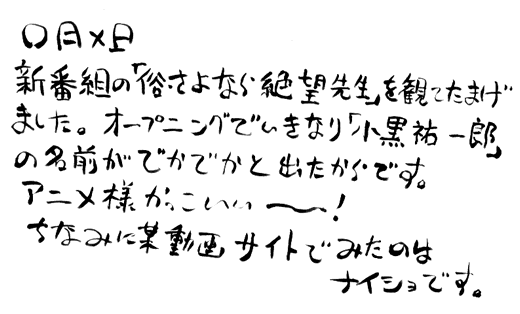 〇月×日
新番組の「俗・さよなら絶望先生」を観てたまげ
ました。オープニングでいきなり「小黒祐一郎」
の名前がでかでかと出たからです。
アニメ様かっこいい〜!
ちなみに某動画サイトでみたのは
ナイショです。